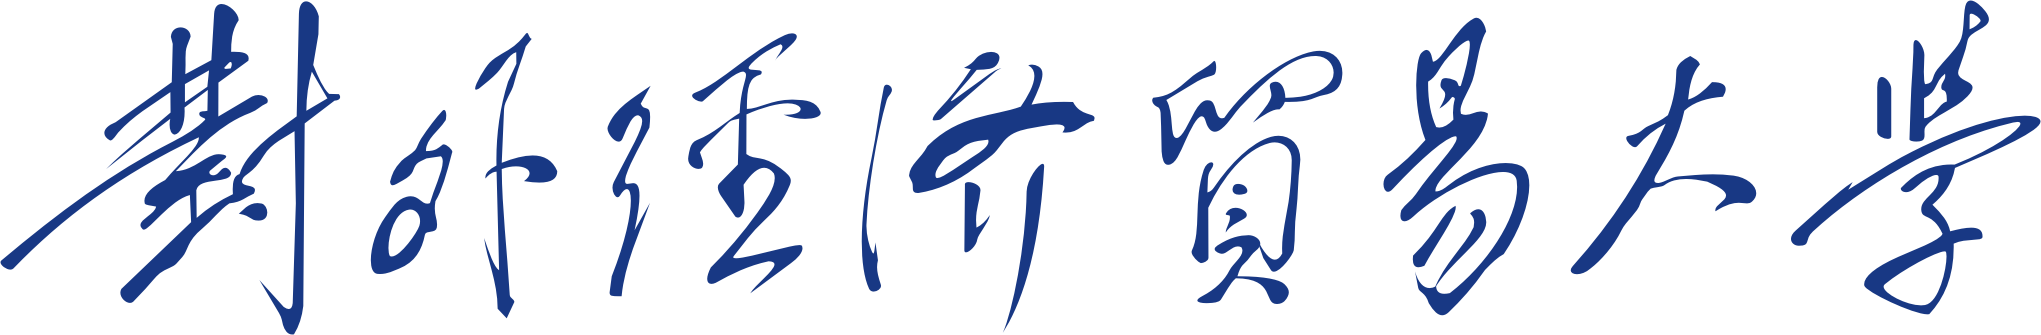 對外經濟貿易大學